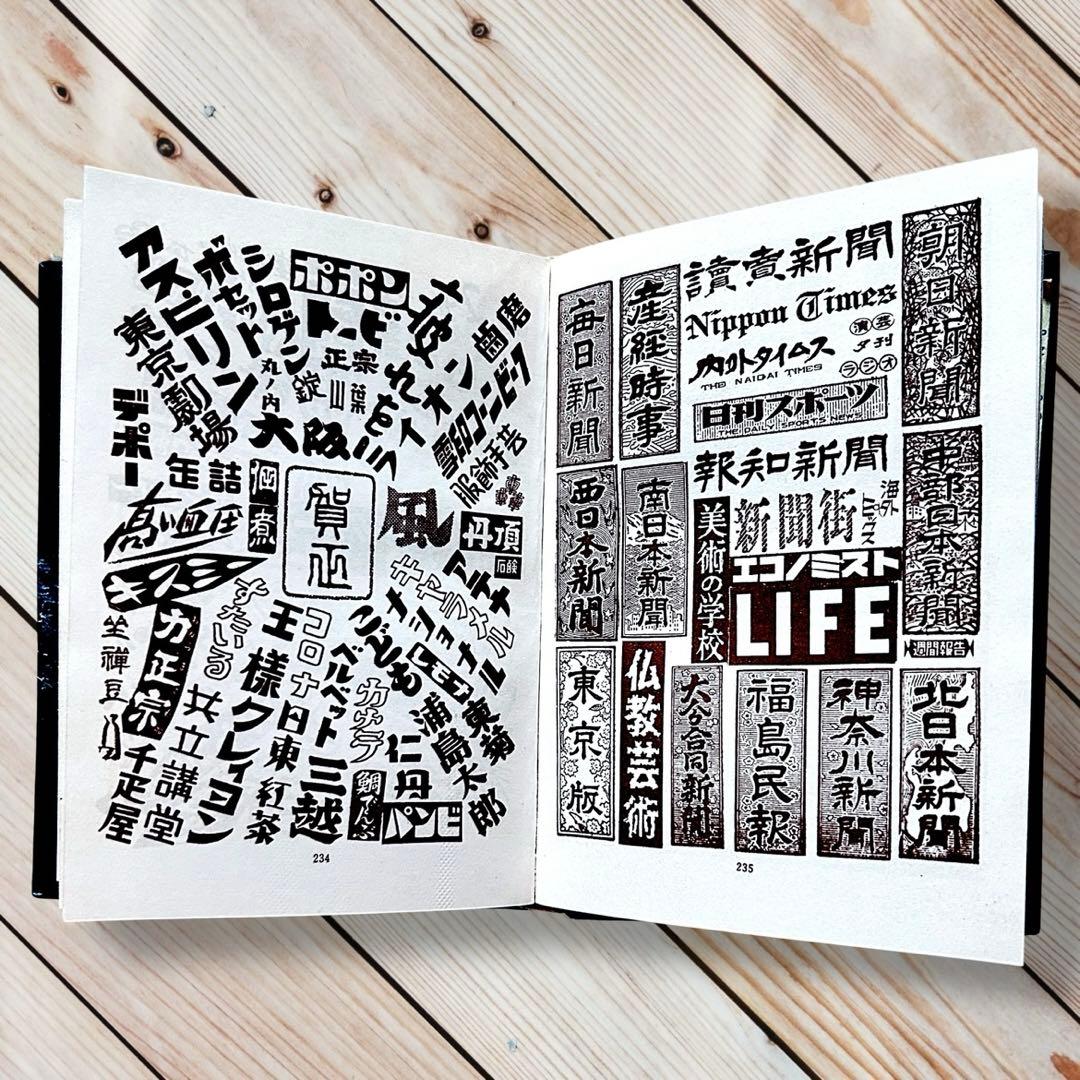 アスピリン
ボセット
シロゲン
ポポン
トービ
東京劇場
丸ノ内
錠
正宗
山葉
大阪
デポー
缶詰
賀正
風
服飾手芸
丹頂
石鹸
高い血圧
キスミー
アテナ
キャラメル
ナショナル
こども
すたいる
コロナ
ベルベット
王様クレイヨン
力正宗
坐禅豆
共立講堂
千疋屋
日東紅茶
三越
仁丹
パンビ
浦島太郎
東菊
234
讀賣新聞
Nippon Times
内外タイムス
THE NAIGAI TIMES
演芸
夕刊
ラジオ
日刊スポーツ
THE DAILY SPORTS NEWS
報知新聞
朝日新聞
産経時事
毎日新聞
中部日本新聞
海外
新聞街
エコノミスト
LIFE
美術の学校
南日本新聞
西日本新聞
週間報告
北日本新聞
神奈川新聞
福島民報
大分合同新聞
仏教芸術
東京版
235